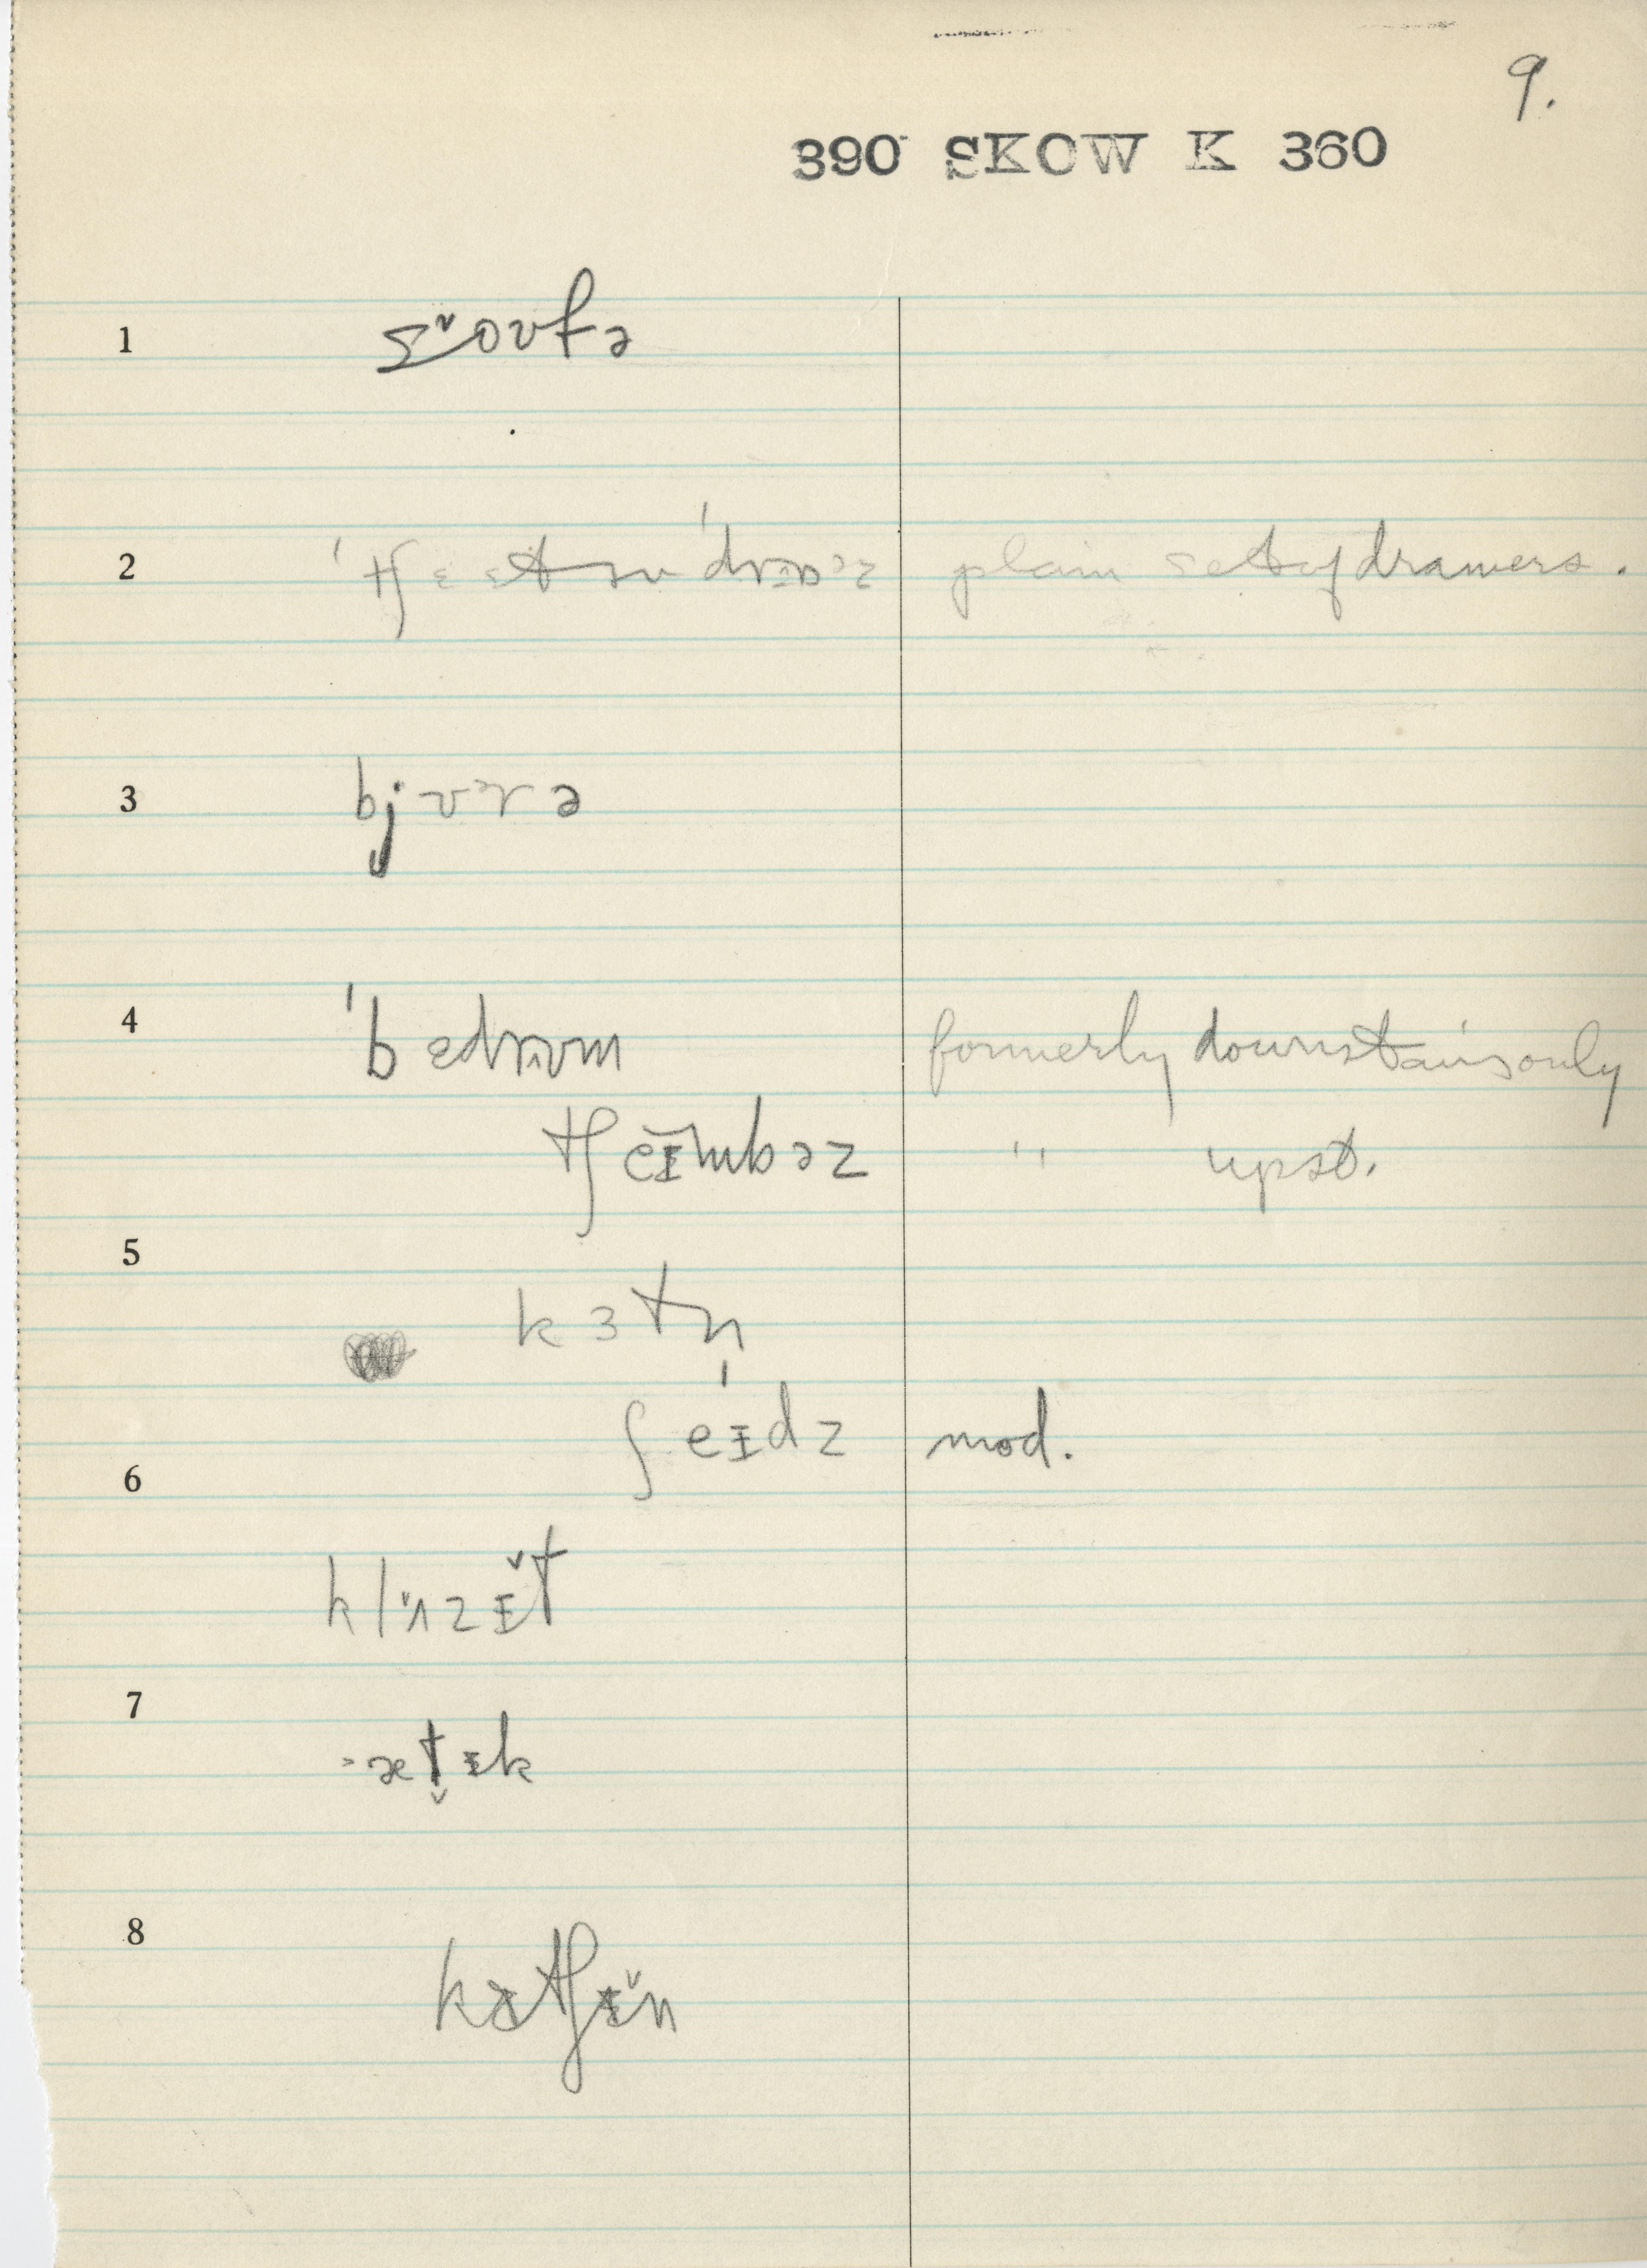 9.
390 SKOW K 360
1
2 plain set of drawers.
3 bjʊᵊrə
4 ˈbɛdrʊm formerly downstairs only
tʃeɪmbəz " upst.
5
kɜtn̩
ʃeɪdz mod.
6
klɑzɪt
7
ætɪk
8
kɪtʃɪn